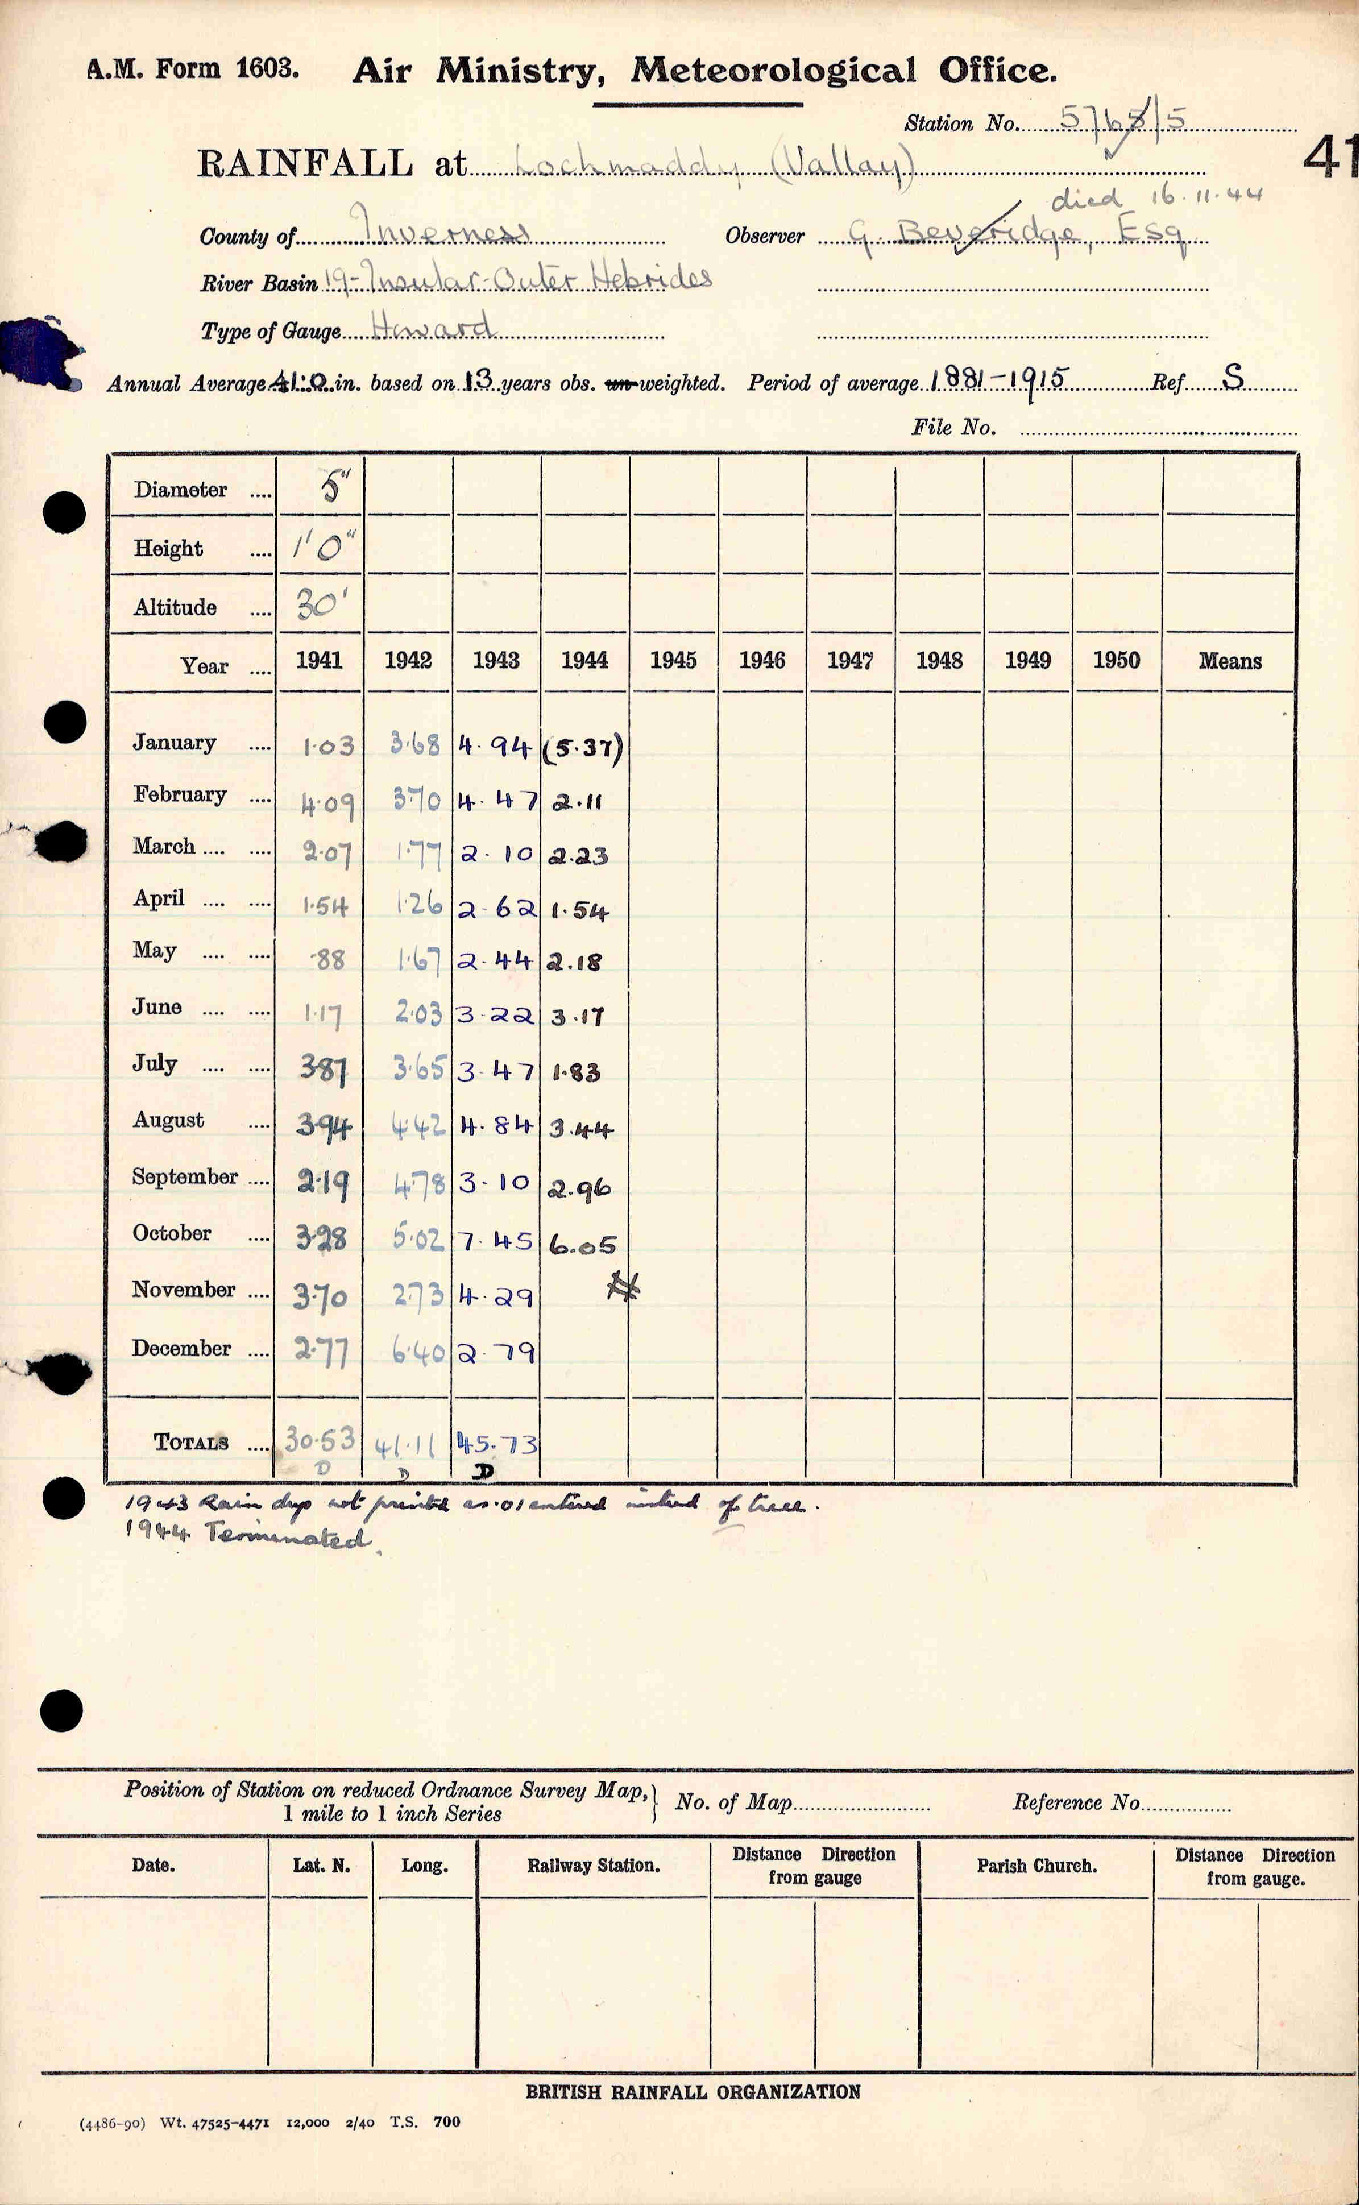 A.M. Form 1603. Air Ministry, Meteorological Office.
Station No. 5768/5
41
RAINFALL at Lochmaddy (Vallay)
died 16.11.44
County of Inverness Observer G. Beveridge, Esq
River Basin 19-Insular-Outer Hebrides
Type of Gauge Howard
Annual Average 41.0 in. based on 13 years obs. un-weighted. Period of average 1881-1915 Ref. S
File No.
Diameter .... 5"
Height .... 1'0"
Altitude .... 30'
Year .... 1941 1942 1943 1944 1945 1946 1947 1948 1949 1950 Means
January .... 1.03 3.68 4.94 (5.37)
February .... 4.09 3.70 4.47 2.11
March .... .... 2.07 1.77 2.10 2.23
April .... .... 1.54 1.26 2.62 1.54
May .... .... .88 1.67 2.44 2.18
June .... .... 1.17 2.03 3.22 3.17
July .... .... 3.87 3.65 3.47 1.83
August .... 3.94 4.42 4.84 3.44
September .... 2.19 4.78 3.10 2.96
October .... 3.28 5.02 7.45 6.05
November .... 3.70 2.73 4.29 #
December .... 2.77 6.40 2.79
TOTALS .... 30.53 41.11 45.73
D D D
1943 Rain days not printed as .01 entered instead of trace.
1944 Terminated.
Position of Station on reduced Ordnance Survey Map, } No. of Map Reference No.
1 mile to 1 inch Series
Date. Lat. N. Long. Railway Station. Distance Direction from gauge Parish Church. Distance Direction from gauge.
BRITISH RAINFALL ORGANIZATION
(4486-90) Wt. 47525-4471 12,000 2/40 T.S. 700